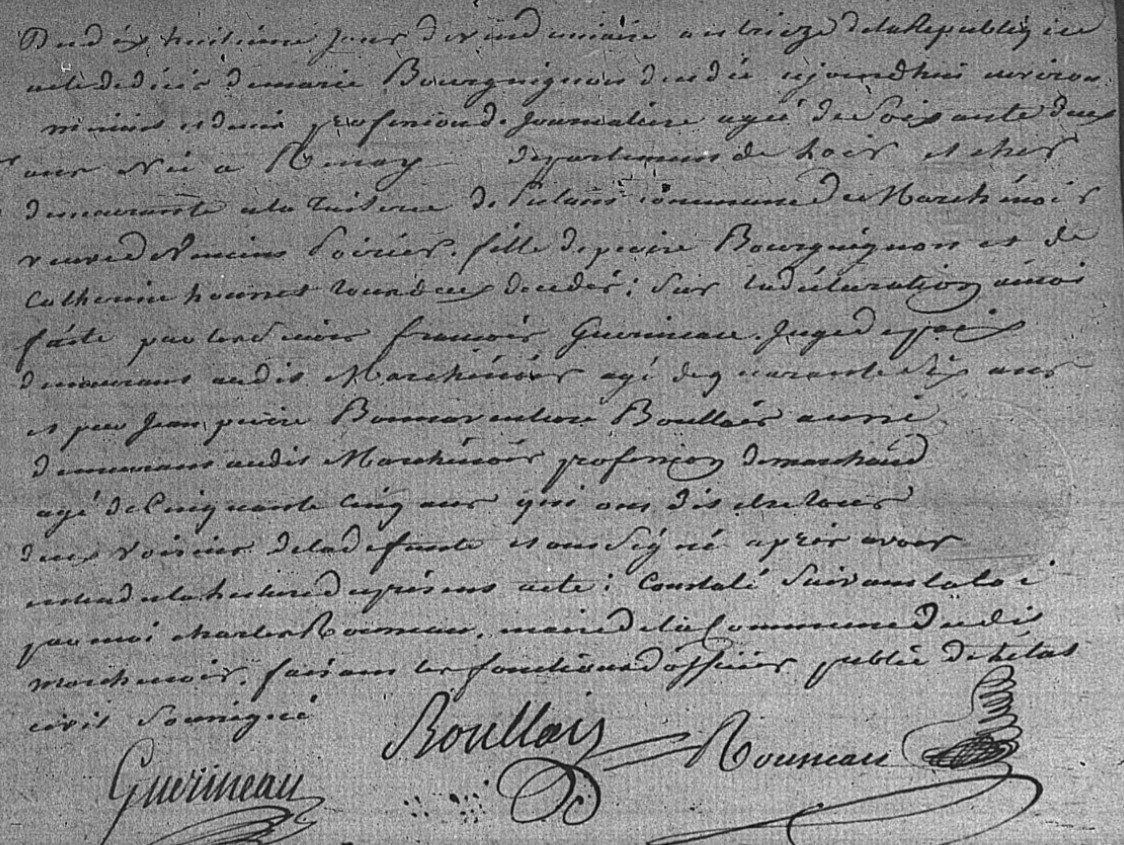 Du dix huitieme jour de vend emiaire an treize de la Republiq ue
acte de décès de marie Bourguignon decedée ajourdhui environ
minuit et demie profession de Journaliere agée de Soixante deux
ans Née a Renay departement de Loir et cher
demeurante a la Tuilerie de commune de Marchénoir
veuve de Poirier. fille de pierre Bourguignon et de
Catherine tous deux decedés; Sur la déclaration à moi
faite par les Srs françois Guerineau Juge de paix
demeurant audit Marchénoir agé de quarante Six ans
et par Jean pierre Bonnaventure Boullais aussi
demeurant audit Marchénoir profession de marchand
agé de Cinquante Cinq ans qui ont dit etre tous
deux voisins de la defunte et ont Signé après avoir
entendu la Lecture du présent acte; Constaté Suivant la loi
par moi charles Rousseau, maire de la Commune Dudit
marchenoir, faisant les fonctions d'officier public de L'état
civil Soussigné
Boullais Rousseau
Guerineau